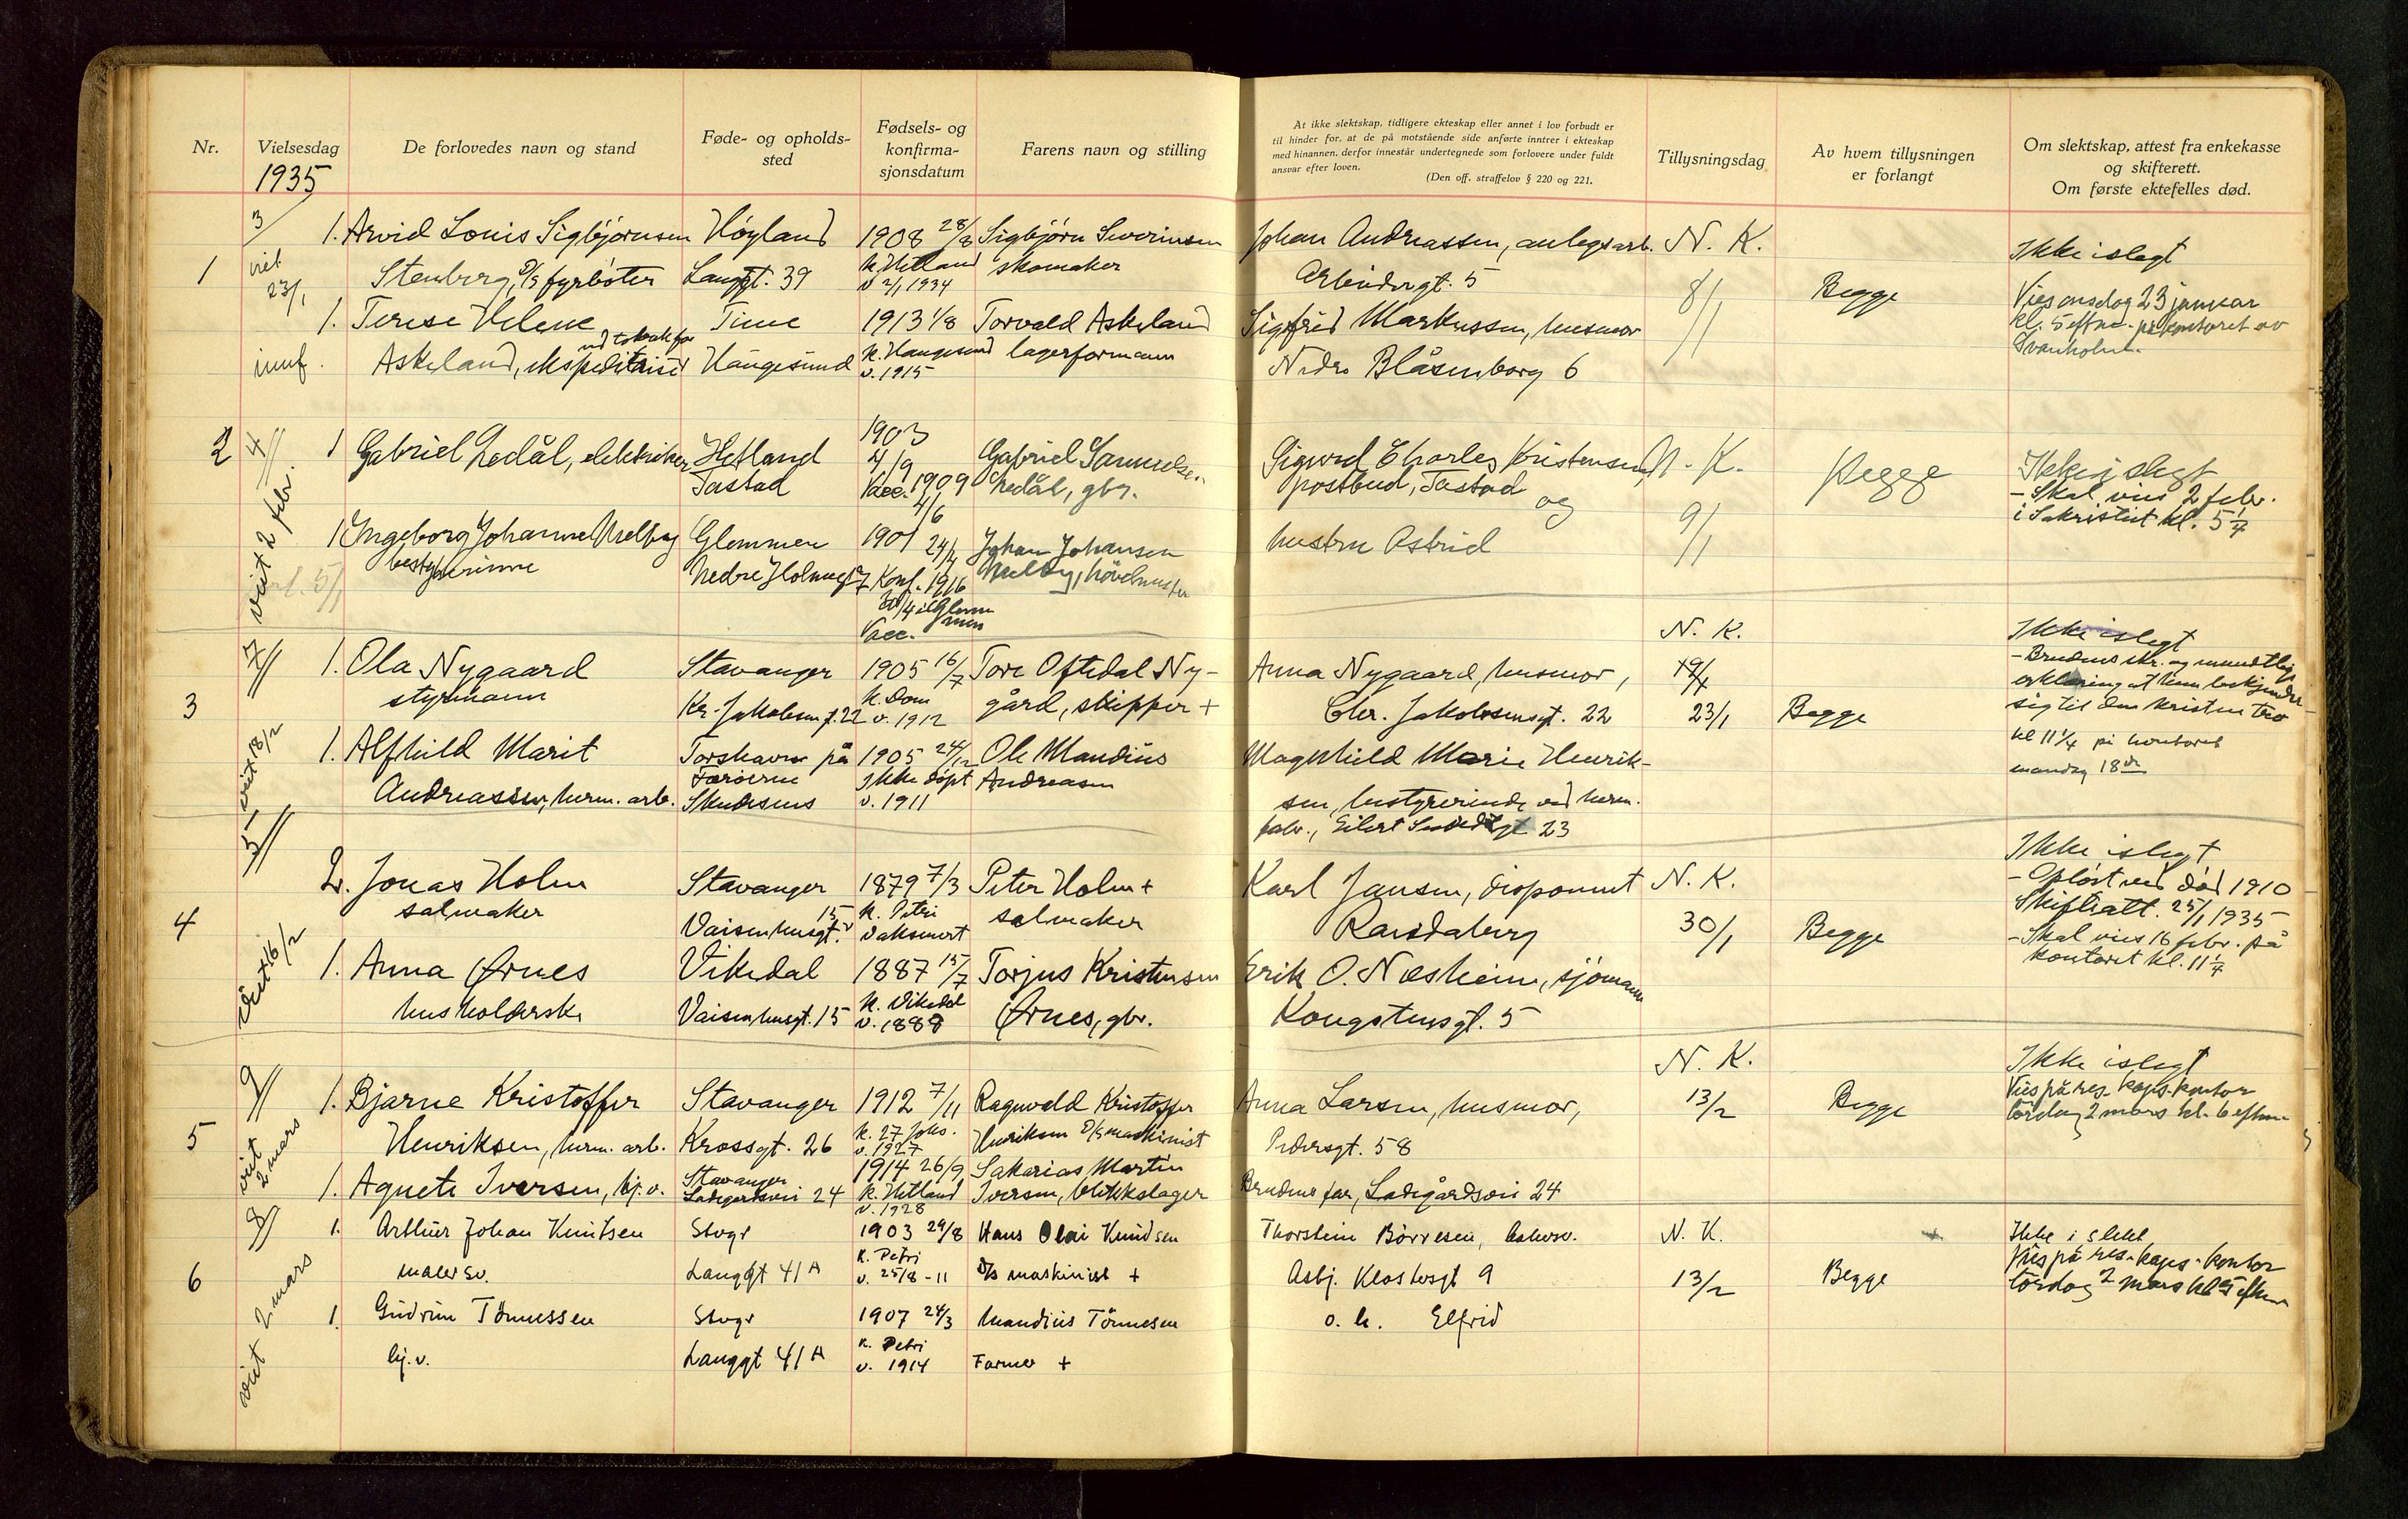 Nr.
Vielsesdag
1935
De forlovedes navn og stand
Føde- og opholds-
sted
Fødsels- og
konfirma-
sjonsdatum
Farens navn og stilling
At ikke slektskap, tidligere ekteskap eller annet i lov forbudt er
til hinder for, at de på motstående side anførte inntrer i ekteskap
med hinannen, derfor innestår undertegnede som forlovere under fuldt
ansvar efter loven.
(Den off. straffelov § 220 og 221.
Tillysningsdag
Av hvem tillysningen
er forlangt
Om slektskap, attest fra enkekasse
og skifterett.
Om første ektefelles død.
1
3/
viet
23/1
1. Arvid Louis Sigbjørnsen
Stenberg, D/S fyrbøter
Høyland
Langgt. 39
1908 28/8
k. Hetland
v 2/1 1934
Sigbjørn Severinsen
skomaker
Johan Andreassen, anlegsarb.
Arbeidergt. 5
N. K.
8/1
Begge
Ikke i slegt
Vies onsdag 23 januar
kl. 5 eftm. på kontoret av
Svanholm.
1. Terese Helene
Askeland,
Time
Haugesund
1913 1/8
k. Haugesund
v. 1915
Torvald Askeland
lagerformann
Sigfrid Markussen, husmor
Nedre Blåsenborg 6
2
4/
viet 2 febr.
1 Gabriel Nedål, elektriker
Hetland
Tastad
1903
4/9
Vacc. 1909
4/6
Gabriel Samuelsen
Nedål, gbr.
Sigurd Charles Kristensen,
postbud, Tastad
og
hustru Astrid
N. K.
9/1
Begge
Ikke i slegt
- Skal vies 2 febr.
i Sakristiet kl. 5 1/4
1 Ingeborg Johanne Melby
bestyrerinne
Glemmen
Nedre Holmegt 7
1901 24/4
Konf. 1916
30/4 i Glem
men
Vacc.
Johan Johansen
Melby, høvelmester
3
7/
viet 18/2
1. Ola Nygaard
styrmann
Stavanger
Kr. Jakobsens g. 22
1905 16/7
k. Dom
v. 1912
Tore Oftedal Ny-
gård, skipper +
Anna Nygaard, husmor,
Chr. Jakobsensgt. 22
N. K.
23/1
Begge
Ikke i slegt
- Brudens skr. og mundtlige
erklæring at hun bekjender
sig til den kristne tro
kl 11 1/4 på kontoret
mandag 18de
1. Alfhild Marit
Andreassen, herm. arb.
Torshavn på
Færøerne
Skudesnes
1905 24/12
Ikke døpt
v. 1911
Ole Mandius
Andreasen
Magnhild Marie Henrik-
sen, bestyrerinde ved herm.
fabr., Eilert Smidtsgt 23
4
5/
viet 16/2
2. Jonas Holm
salmaker
Stavanger
Vaisenhusgt. 15
1879 7/3
k. Petri
Peter Holm +
salmaker
Karl Jansen, disponent
Ramsdaberg
N. K.
30/1
Begge
Ikke i slegt
- Opløst ved død 1910
Skifteatt. 25/1 1935
- Skal vies 16 febr. på
kontoret kl. 11 1/4
1. Anna Ørnes
husholderske
Vikedal
Vaisenhusgt. 15
1887 15/7
k. Vikedal
v. 1888
Torjus Kristensen
Ørnes, gbr.
Erik O. Næsheim, sjømann
Kongstensgt. 5
5
9/
viet
2 mars
1. Bjarne Kristoffer
Henriksen, herm. arb.
Stavanger
Krossgt. 26
1912 7/11
k. 27 Johs.
v. 1927
Ragnvald Kristoffer
Henriksen D/S maskinist
Anna Larsen, husmor,
Pedersgt. 58
N. K.
13/2
Begge
Ikke i slegt
Vies på res. kaps. kontor
lørdag 2 mars kl. 6 eftm.
1. Agnete Iversen, hj. v.
Stavanger
Ladegårdsvei 24
1914 26/9
k. Hetland
v. 1928
Sakarias Martin
Iversen, blikkslager
Brudens far, Ladegårdsvei 24
6
8/
viet 2 mars
1. Arthur Johan Knutsen
maler sv.
Stvgr
Langgt 41 A
1903 29/8
k. Petri
v. 25/8 - 11
Hans Olai Knudsen
D/s maskinist +
Thorstein Børresen,
Asbj. Klostergt 9
o. h. Elfrid
N. K.
13/2
Begge
Ikke i slekt
Vies på res. kaps. kontor
lørdag 2 mars kl 5 eftm
1. Gudrun Tönnessen
hj. v.
Stvgr
Langgt 41 A
1907 24/3
k. Petri
v. 1914
Mandius Tönnesen
Farmer +